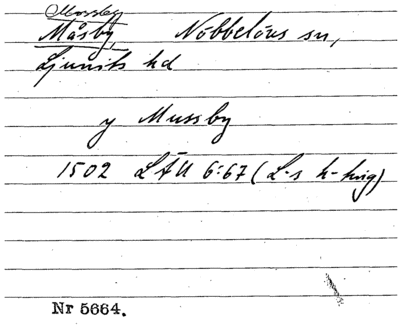 Mossby
Måsby, Nöbbelövs sn,
Ljunits hd
y Mussby
1502 LÄU 6:67 (L-s k-hvig)
Nr 5664.